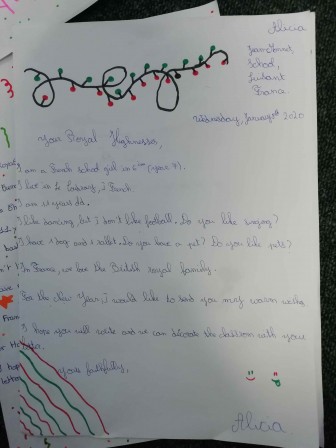 Alicia
School,
France
Wednesday, January 8th 2020
Your Royal Highnesses,
I am a French school girl in 6ème (year 7).
I live in
I am 11 years old.
I like dancing, but I don't like football. Do you like singing?
I have 1 dog and 1 rabbit. Do you have a pet? Do you like pets?
In France, we love the British royal family.
For the New Year, I would like to send you my warm wishes.
I hope you will write and we can decorate the classroom with your
letter.
Yours faithfully,
Alicia